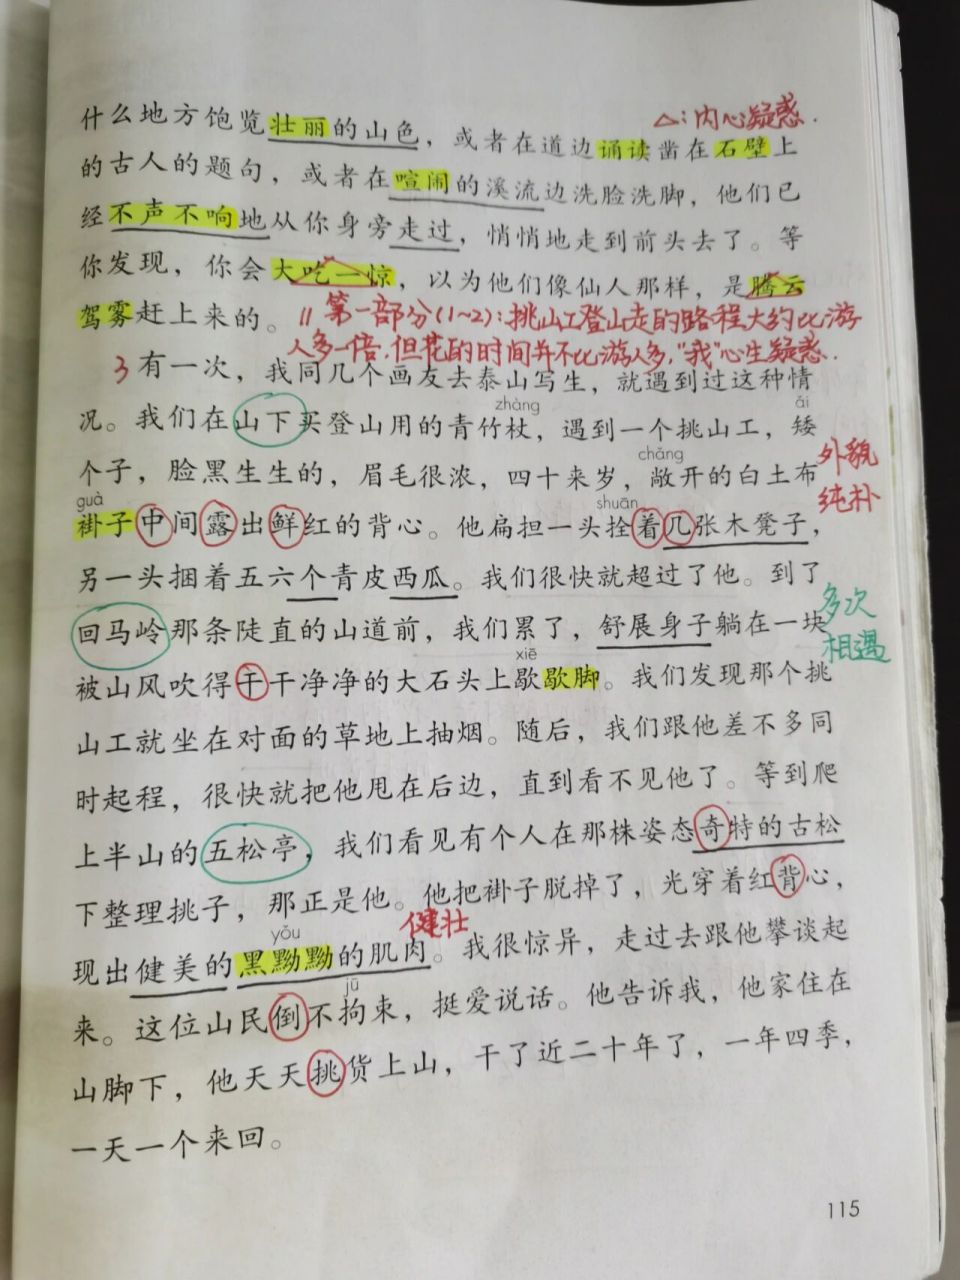 △:内心疑惑.
什么地方饱览壮丽的山色，或者在道边诵读凿在石壁上
的古人的题句，或者在喧闹的溪流边洗脸洗脚，他们已
经不声不响地从你身旁走过，悄悄地走到前头去了。等
你发现，你会大吃一惊，以为他们像仙人那样，是腾云
驾雾赶上来的。
∥第一部分(1~2):挑山工登山走的路程大约比游
人多一倍,但花的时间并不比游人多,"我"心生疑惑.
3有一次，我同几个画友去泰山写生，就遇到过这种情
zhàng ǎi
况。我们在山下买登山用的青竹杖，遇到一个挑山工，矮
chǎng
个子，脸黑生生的，眉毛很浓，四十来岁，敞开的白土布
外貌
纯朴
guà shuān
褂子中间露出鲜红的背心。他扁担一头拴着几张木凳子，
另一头捆着五六个青皮西瓜。我们很快就超过了他。到了
多次
相遇
回马岭那条陡直的山道前，我们累了，舒展身子躺在一块
xiē
被山风吹得干干净净的大石头上歇歇脚。我们发现那个挑
山工就坐在对面的草地上抽烟。随后，我们跟他差不多同
时起程，很快就把他甩在后边，直到看不见他了。等到爬
上半山的五松亭，我们看见有个人在那株姿态奇特的古松
下整理挑子，那正是他。他把褂子脱掉了，光穿着红背心，
yǒu 健壮
现出健美的黑黝黝的肌肉。我很惊异，走过去跟他攀谈起
jū
来。这位山民倒不拘束，挺爱说话。他告诉我，他家住在
山脚下，他天天挑货上山，干了近二十年了，一年四季，
一天一个来回。
115